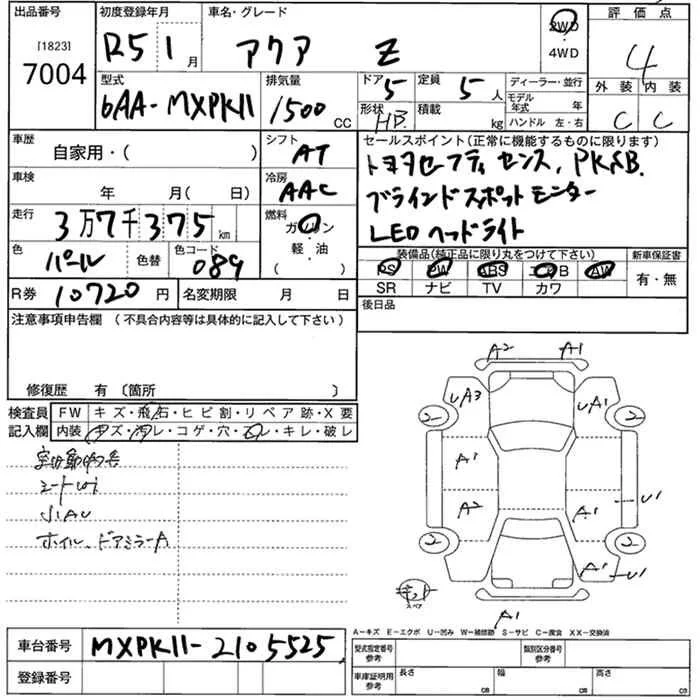 出品番号 初度登録年月 車名・グレード 評価点
[1823] 7004 R5 1月 アクア Z 2WD・4WD 4
型式 排気量 ドア 5 定員 5人 ディーラー・並行 外装 内装
6AA-MXPK11 1500cc 形状 HB. 積載 kg モデル年式 年 C C
ハンドル 左・右
車歴 自家用・( ) シフト AT セールスポイント(正常に機能するものに限ります)
トヨタセーフティセンス, PKSB.
車検 年 月( 日) 冷房 AAC ブラインドスポットモニター
走行 3万7千375km 燃料 ガソリン・軽・油( ) LEDヘッドライト
色 パール 色替 色コード 089 装備品(純正品に限り丸をつけて下さい) 新車保証書
PS PW ABS エアB AW 有・無
R券 10720円 名変期限 月 日 SR ナビ TV カワ
注意事項申告欄(不具合内容等は具体的に記入して下さい) 後日品
修復歴 有〔箇所 〕
検査員記入欄 FW キズ・飛石・ヒビ割・リペア跡・X要
内装 キズ・汚レ・コゲ・穴・スレ・キレ・破レ
シートヨゴレ
小AU
ホイル、ドアミラーA
A2 A1
UA3 UA1
2 2
A1
A2 A1 U1
2 2
A1 U1
キット スペア
A1
A-キズ E-エクボ U-凹み W-補修跡 S-サビ C-腐食 XX-交換済
車台番号 MXPK11-2105525
登録番号
型式指定番号 参考 類別区分番号 参考
車庫証明用 参考 長さ cm 幅 cm 高さ cm